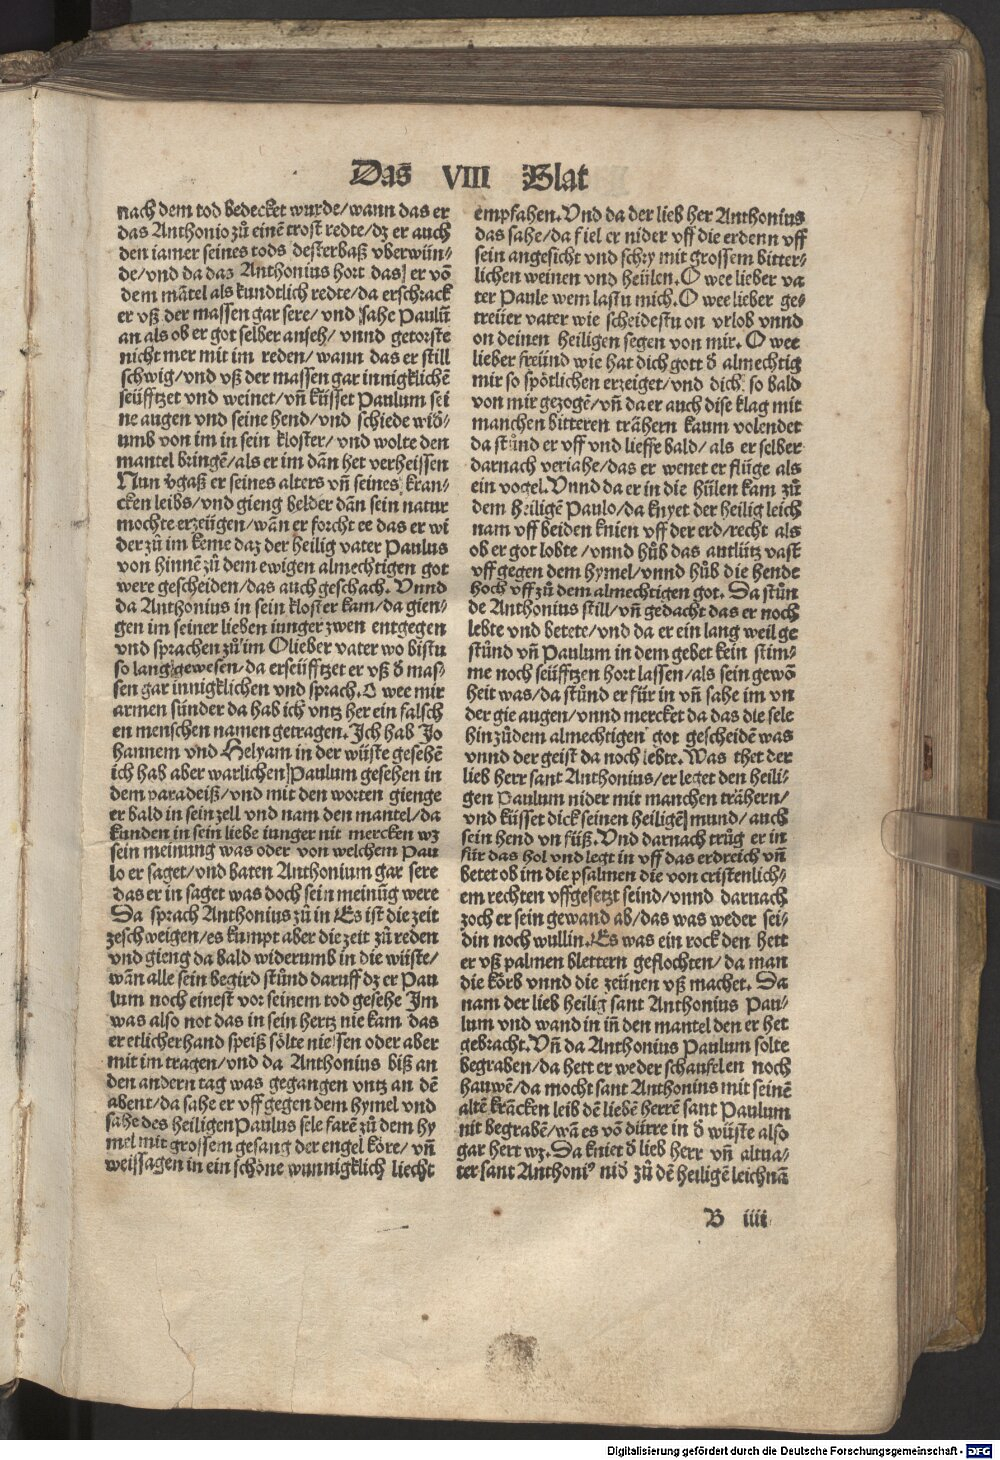 Das VIII Blat
nach dem tod bedecket wurde/wann das er
das Anthonio zů einē trost redte/dz er auch
den iamer seines tods desterbaß vberwün⸗
de/vnd da daz Anthonius hort das er vō
dem mātel als kundtlich redte/da erschrack
er vß der massen gar sere/vnd sahe Paulū
an als ob er got selber anseh/vnnd getorste
nicht mer mit im reden/wann das er still
schwig/vnd vß der massen gar innigklichē
seüfftzet vnd weinet/vn̄ küsset Paulum sei
ne augen vnd seine hend/vnd schiede wid̄⸗
umb von im in sein kloster/vnd wolte den
mantel bringē/als er im dān het verheissen
Nun v̄gaß er seines alters vn̄ seines kran⸗
cken leibs/vnd gieng belder dān sein natur
mochte erzeügen/wān er forcht ee das er wi
der zů im keme daz der heilig vater Paulus
von hinnē zů dem ewigen almechtigen got
were gescheiden/das auch geschach. Vnnd
da Anthonius in sein kloster kam/da gien⸗
gen im seiner lieben iunger zwen entgegen
vnd sprachen zů im O lieber vater wo bistu
so lang gewesen/da erseüfftzet er vß d̄ mas⸗
sen gar innigklichen vnd sprach. O wee mir
armen sünder da hab ich vntz her ein falsch
en menschen namen getragen. Ich hab Jo
hannem vnd Helyam in der wüste gesehē
ich hab aber warlichen Paulum gesehen in
dem paradeiß/vnd mit den worten gienge
er bald in sein zell vnd nam den mantel/da
kunden in sein liebe iunger nit mercken wz
sein meinung was oder von welchem Pau
lo er saget/vnd baten Anthonium gar sere
das er in saget was doch sein meinūg were
Da sprach Anthonius zů in Es ist die zeit
zeschweigen/es kumpt aber die zeit zů reden
vnd gieng da bald widerumb in die wüste/
wān alle sein begird stůnd daruff dz er Pau
lum noch einest vor seinem tod gesehe Im
was also not das in sein hertz nie kam das
er etlicherhand speiß sölte niessen oder aber
mit im tragen/vnd da Anthonius biß an
den andern tag was gegangen vntz an dē
abent/da sahe er vff gegen dem hymel vnd
sahe des heiligen Paulus sele farē zů dem hy
mel mit grossem gesang der engel köre/vn̄
weissagen in ein schöne wunnigklich liecht
empfahen. Vnd da der lieb her Anthonius
das sahe/da fiel er nider vff die erdenn vff
sein angesicht vnd schry mit grossem bitter⸗
lichen weinen vnd heülen. O wee lieber va
ter Paule wem lastu mich. O wee lieber ge⸗
treüer vater wie scheidestu on vrlob vnnd
on deinen heiligen segen von mir. O wee
lieber freünd wie hat dich gott d̄ almechtig
mir so spötlichen erzeiget/vnd dich so bald
von mir gezogē/vn̄ da er auch dise klag mit
manchen bitteren trähern kaum volendet
da stůnd er vff vnd lieffe bald/als er selber
darnach veriahe/das er wenet er flüge als
ein vogel. Vnnd da er in die hülen kam zů
dem heiligē Paulo/da knyet der heilig leich
nam vff beiden knien vff der erd/recht als
ob er got lobte/vnnd hůb das antlütz vast
vff gegen dem hymel/vnnd hůb die hende
hoch vff zů dem almechtigen got. Da stůn
de Anthonius still/vn̄ gedacht das er noch
lebte vnd betete/vnd da er ein lang weil ge
stůnd vn̄ Paulum in dem gebet kein stim⸗
me noch seüfftzen hort lassen/als sein gewō
heit was/da stůnd er für in vn̄ sahe im vn
der gie augen/vnnd mercket da das die sele
hin zů dem almechtigen got gescheidē was
vnnd der geist da noch lebte. Was thet der
lieb herr sant Anthonius/er leget den heili⸗
gen Paulum nider mit manchen trähern/
vnd küsset dick seinen heiligē mund/auch
sein hend vn füß. Vnd darnach trůg er in
für das hol vnd legt in vff das erdreich vn̄
betet ob im die psalmen die von cristenlich⸗
em rechten vffgesetzt seind/vnnd darnach
zoch er sein gewand ab/das was weder sei⸗
din noch wullin. Es was ein rock den hett
er vß palmen blettern geflochten/da man
die körb vnnd die zeünen vß machet. Da
nam der lieb heilig sant Anthonius Pau⸗
lum vnd wand in in̄ den mantel den er het
gebracht. Vn̄ da Anthonius Paulum solte
begraben/da hett er weder schaufelen noch
hauwē/da mocht sant Anthonius mit seinē
altē krācken leib dē liebē herrē sant Paulum
nit begrabē/wā es vō dürre in d̄ wüste also
gar hert wz. Da kniet d̄ lieb herr vn̄ altua⸗
ter sant Anthoniꝰ nid̄ zů dē heiligē leichnā
B iiii
Digitalisierung gefördert durch die Deutsche Forschungsgemeinschaft - DFG